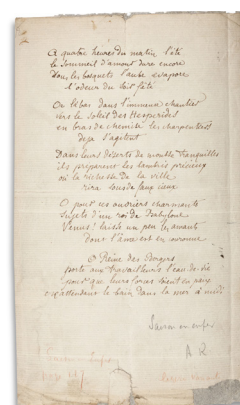 A quatre heures du matin l'été
le Sommeil d'amour dure encore
Sous les bosquets l'aube évapore
l'odeur du soir fêté
Or là bas dans l'immense chantier
vers le soleil des Hespérides
en bras de chemise les charpentiers
déjà s'agitent
Dans leurs déserts de mousse tranquilles
ils préparent les lambris précieux
où la richesse de la ville
rira sous de faux cieux
O pour ces ouvriers charmants
Sujets d'un roi de Babylone
Venus! laisse un peu les amants
dont l'âme est en couronne
O Reine des Bergers
porte aux travailleurs l'eau de vie
pour que leurs forces soient en paix
en attendant le bain dans la mer à midi
Saison en enfer
A R